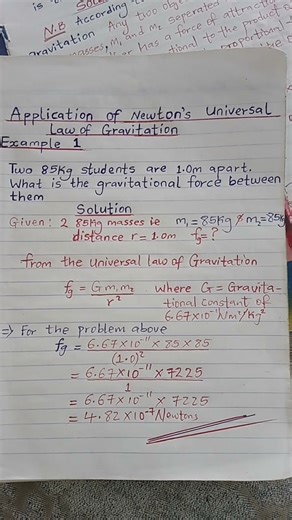 N.B According
gravitation Any two obje
masses, m₁ and m₂ seperated
has a force of attracti
tional to the product o
proportional
Application of Newton's Universal
Law of Gravitation
Example 1
Two 85Kg students are 1.0m apart.
What is the gravitational force between
them
Solution
Given: 2 85Kg masses ie m₁=85kg & m₂=85kg
distance r=1.0m fg=?
from the universal law of Gravitation
fg = G m₁m₂ / r² where G = Gravita-
tional constant of
6.67×10⁻¹¹Nm²/Kg²
⇒ For the problem above
fg = 6.67×10⁻¹¹ × 85 × 85 / (1.0)²
= 6.67×10⁻¹¹ × 7225 / 1
= 6.67×10⁻¹¹ × 7225
= 4.82×10⁻⁷ Newtons